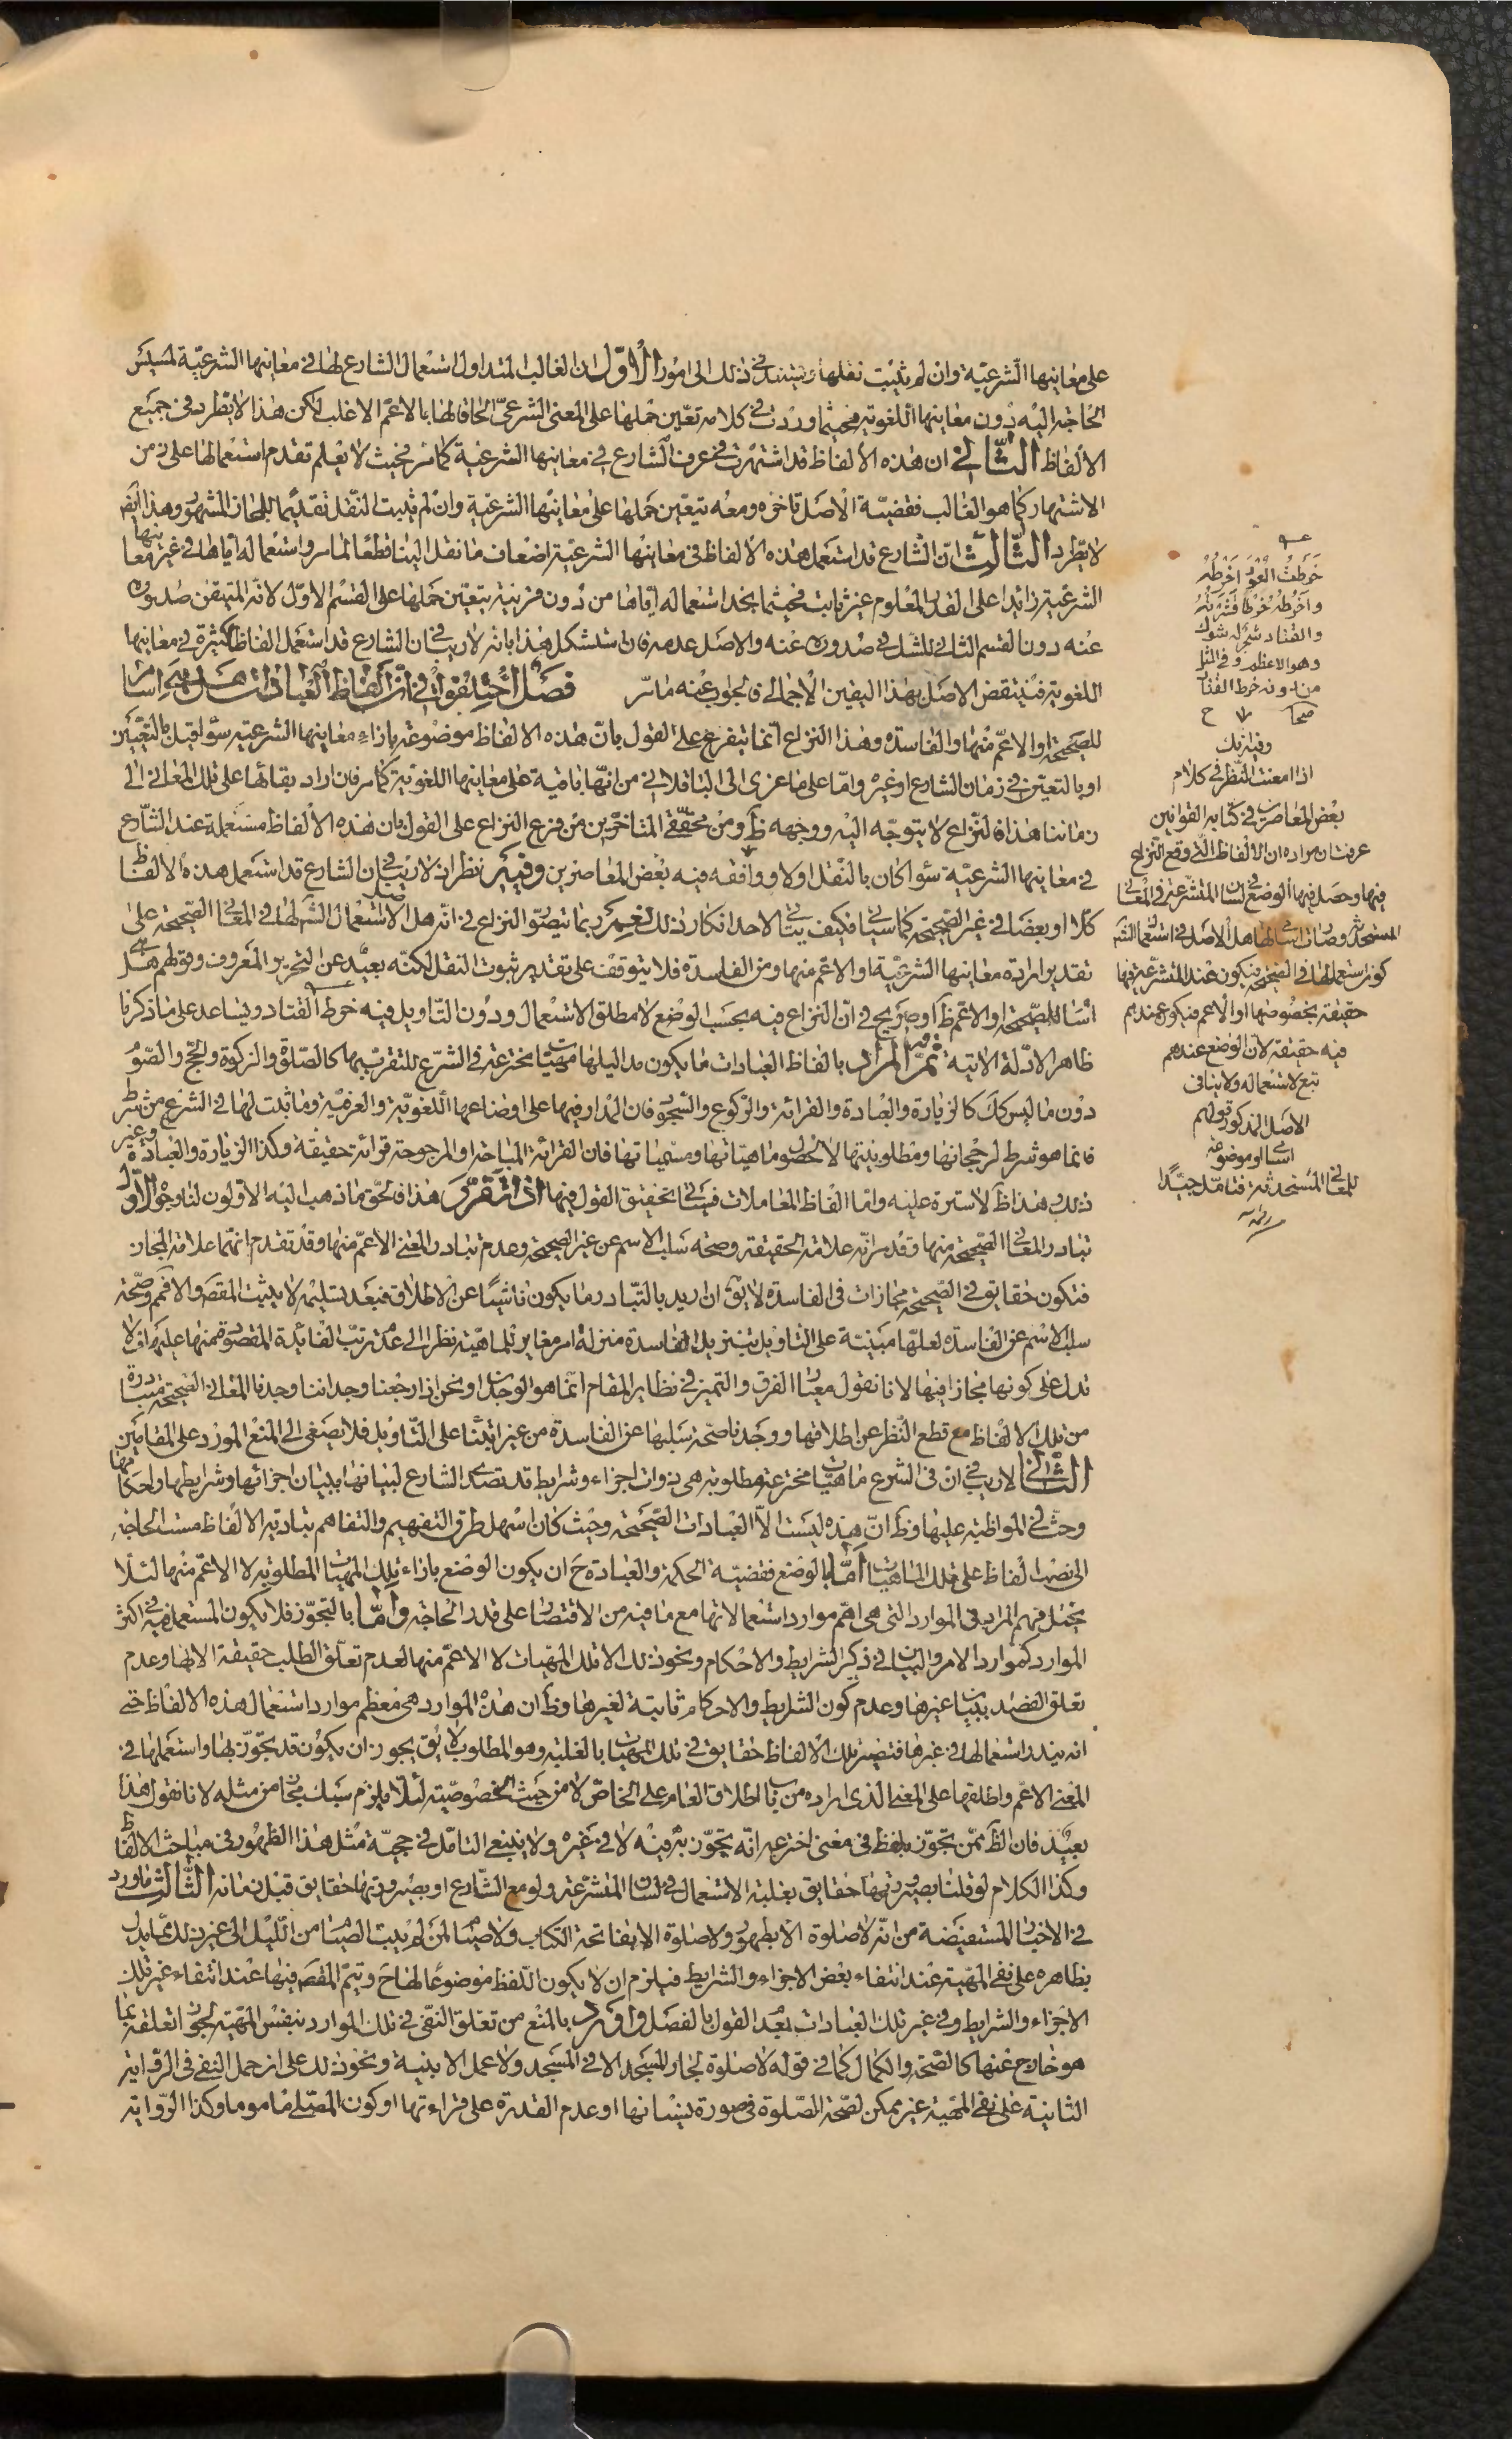 على معانيها الشرعيّة وان لم يثبت نقلها ويستند في ذلك الى امور الاوّل ان الغالب المتداول استعمال الشارع لها في معانيها الشرعيّة لمسيس
الحاجة اليه دون معانيها اللغوية فحيثما وردت في كلامه تعيّن حملها على المعنى الشرعىّ الحاقا لها بالاعمّ الاغلب لكن هذا لا يطرد في جميع
الالفاظ الثّانى ان هذه الالفاظ قد اشتهرت في عرف الشارع في معانيها الشرعية كما مر فحيث لا يعلم تقدم استعمالها على زمن
الاشتهار كما هو الغالب فقضيّة الاصل تاخره ومعه يتعيّن حملها على معانيها الشرعيّة وان لم يثبت النقل تقديما للمجاز المشهور وهذا ايض
لا يطرد الثّالث انّ الشارع قد استعمل هذه الالفاظ في معانيها الشرعيّة اضعاف ما نقل الينا قطعا لما مر واستعماله ايّاها في غير معانيها
الشرعيّة زائدا على القدر المعلوم غير ثابت فحيثما نجد استعماله ايّاها من دون قرينة يتعيّن حملها على القسم الاوّل لانّه المتيقن صدوره
عنه دون القسم الثاني للشك في صدوره عنه والاصل عدمه فان استشكل هذا بانّه لا ريب في ان الشارع قد استعمل الفاظا كثيرة في معانيها
اللغوية فينتقض الاصل بهذا اليقين الاجمالي فالجواب عنه ما مرّ فصل اختلفوا في انّ الفاظ العبادات هل هي اسام
للصّحيحة او الاعمّ منها والفاسدة وهذا النزاع انّما يتفرع على القول بانّ هذه الالفاظ موضوعة بازاء معانيها الشرعية سواء قيل بالتّعيين
او بالتعيّن في زمان الشارع او غيره وامّا على ما عزى الى الباقلاني من انّها باقية على معانيها اللغوية كما مر فان اراد بقائها على تلك المعاني الى
زماننا هذا فالنّزاع لا يتوجّه اليه ووجهه ظ ومن محقّقى المتاخّرين من فرع النزاع على القول بان هذه الالفاظ مستعملة عند الشّارع
في معانيها الشرعيّة سواء كان بالنّقل او لا ووافقه فيه بعض المعاصرين وفيه نظر اذ لا ريب في ان الشارع قد استعمل هذه الالفاظ
كلّا او بعضا في غير الصّحيحة كما سياتي فكيف يتاتى لاحد انكار ذلك نعم ربما يتصوّر النزاع في انّه هل الاصل في استعمال الشارع لها في المعاني الصّحيحة على
تقدير ارادة معانيها الشرعيّة او الاعم منها ومن الفاسدة فلا يتوقف على تقدير ثبوت النقل لكنّه بعيد عن التحرير المعروف وقولهم هل هي
اسام للصّحيحة او الاعم ظ او صريح في انّ النزاع فيه بحسب الوضع لا مطلق الاستعمال ودون التّاويل فيه خرط القتاد ويساعد على ما ذكرنا
ظاهر الادّلة الاتية ثمّ المراد بالفاظ العبادات ما يكون مداليلها مهيّات مخترعة في الشّرع للتقرب بها كالصّلوة والزكوة والحجّ والصّوم
دون ما ليس كك كالزيارة والعبادة والقرائة والركوع والسّجود فان المدار فيها على اوضاعها اللغويّة والعرفيّة وما ثبت لها في الشرع من شرط
فانما هو شرط لرجحانها ومطلوبيتها لا لحصول ماهيّاتها ومسمّياتها فان القرائة المباحة او المرجوحة قرائة حقيقة وكذا الزيارة والعبادة وغير
ذلك هذا ظ لا سترة عليه وامّا الفاظ المعاملات فسياتي تحقيق القول فيها اذا تقرّر هذا فالحق ما ذهب اليه الاوّلون لنا وجوه الاوّل
تبادر المعاني الصّحيحة منها وقد مر انّه علامة الحقيقة وصحّة سلب الاسم عن غير الصّحيحة وعدم تبادر المعنى الاعمّ منها وقد تقدم انّهما علامة المجاز
فتكون حقايق في الصّحيحة مجازات في الفاسدة لا يق ان اريد بالتّبادر ما يكون ناشيًا عن الاطلاق فبعد تسليمه لا يثبت المقصود والا فمم وصحّة
سلب الاسم عن الفاسدة لعلّها مبنيّة على التاويل بتنزيل الفاسدة منزلة امر مغاير للماهيّة نظرا الى عدم ترتّب الفائدة المقصودة منها عليها فلا
تدل على كونها مجازا فيها لانا نقول معيار الفرق والتميز في نظاير المقام انّما هو الوجدان ونحن اذا رجعنا وجداننا وجدنا المعاني الصّحيحة متبادرة
من تلك الالفاظ مع قطع النّظر عن اطلاقها ووجدنا صحّة سلبها عن الفاسدة من غير ابتناء على التّاويل فلا يصغى الى المنع المورد على المقامين
الثّانى لا ريب في ان في الشرع ماهيّات مخترعة مطلوبة هي ذوات اجزاء وشرايط قد تصدى الشارع لبيانها ببيان اجزائها وشرايطها واحكامها
وحثّ في المواظبة عليها وظ انّ هذه ليست الّا العبادات الصّحيحة وحيث كان اسهل طرق التفهيم والتفاهم بتادية الالفاظ مست الحاجة
الى نصب الفاظ على تلك الماهيات امّا بالوضع فقضيّة الحكمة والعبادة ح ان يكون الوضع بازاء تلك المهيّات المطلوبة لا الاعمّ منها لئلّا
يختل فهم المراد في الموارد التى هى اهم موارد استعمالاتها مع ما فيه من الاقتصار على قدر الحاجة وامّا بالتجوّز فلا يكون المستعمل فيه في اكثر
الموارد كموارد الامر والبيان في ذكر الشرايط والاحكام ونحو ذلك الا تلك المهيّات لا الاعمّ منها لعدم تعلّق الطلب حقيقة الا بها وعدم
تعلق القصد ببيان غيرها وعدم كون الشرايط والاحكام ثابتة لغيرها وظ ان هذه الموارد هى معظم موارد استعمال هذه الالفاظ حتى
انه يندر استعمالها في غيرها فتصير تلك الالفاظ حقايق في تلك المهيّات بالغلبة وهو المطلوب لا يق يجوز ان يكون قد تجوّز بها واستعملها في
المعنى الاعمّ واطلقها على المعنى الذى اراده من باب اطلاق العام على الخاصّ لا من حيث الخصوصيّة لئلّا يلزم سبك مجاز من مثله لانا نقول هذا
بعيد فان الظ ممّن تجوّز بلفظ في معنى اخترعه انّه تجوّز به فيه لا في غيره ولا ينبغى التامّل في حجيّة مثل هذا الظهور في مباحث الالفاظ
وكذا الكلام لو قلنا بصيرورتها حقايق بغلبة الاستعمال في لسان المتشرّعة ولو مع الشّارع او بصيرورتها حقايق قبل زمانه الثّالث ما ورد
في الاخبار المستفيضة من انّه لا صلوة الا بطهور ولا صلوة الا بفاتحة الكتاب ولا صيام لمن لم يبت الصيام من اللّيل الى غير ذلك ممّا يدل
بظاهره على نفى المهيّة عند انتفاء بعض الاجزاء والشرايط فيلزم ان لا يكون اللّفظ موضوعا لها ح ويتمّ المقص فيها عند انتفاء غير تلك
الاجزاء والشرايط وفي غير تلك العبادات بعدم القول بالفصل واورد بالمنع من تعلّق النّفى في تلك الموارد بنفس المهيّة لجواز تعلقه بما
هو خارج عنها كالصّحّة والكمال كما في قوله لا صلوة لجار المسجد الا في المسجد ولا عمل الا بنيّة ونحو ذلك على ان حمل النفى في الرّواية
الثانية على نفى المهيّة غير ممكن لصّحة الصّلوة في صورة نسيانها او عدم القدرة على قراءتها او كون المصلّى ماموما وكذا الرّواية
خرطت العود اخرطه
واخرطه خرطا قشرته
والقتاد شجر له شوك
وهو الاعظم وفي المثل
من دونه خرط القتاد
صحاح
اذا امعنت النّظر في كلام
بعض المعاصرين في كتابه القوانين
عرفت ان مراده ان الالفاظ الّتى وقع النّزاع
فيها وحصل فيها الوضع في لسان المتشرّعة في المعاني
المستحدثة وصارت اسامي لها هل الاصل في استعمال الشّارع
كون استعمالها في الصّحيحة فيكون عند المتشرّعة فيها
حقيقة بخصوصها او الاعم فيكون عندهم
فيه حقيقة لان الوضع عندهم
تبع لاستعماله ولا ينافى
الاصل المذكور قولهم
اسام او موضوعة
للمعاني المستحدثة فتامّل جيّدًا